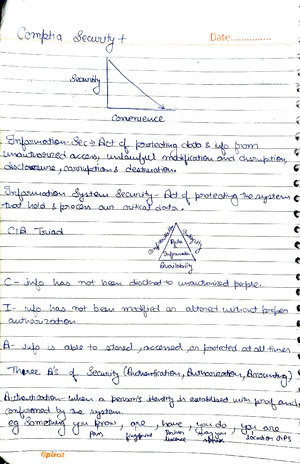 Comptia Security +
Date..............
Security
Convenience
Information-Sec → Act of protecting data & info from
unauthorized access, unlawful modification and disruption,
disclosure, corruption & destruction.
Information System Security - Act of protecting the system
that hold & process our critical data.
CIA Triad
Confidentiality
Integrity
Data
Information
Availability
C - info has not been disclosed to unauthorized people.
I - info has not been modified or altered without proper
authorization.
A - info is able to stored, accessed, or protected at all times
Three A's of Security (Authentification, Authorization, Accounting)
Authentication - when a person's identity is established with proof and
confirmed by the system.
eg something you know, are, have, you do, you are
Pass fingerprint license location GPS
Spiral